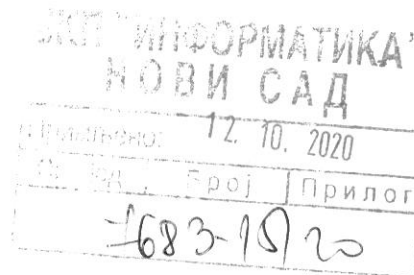 ЈКП "ИНФОРМАТИКА"
НОВИ САД
Примљено: 12. 10. 2020
Број Прилог
1683-15/20